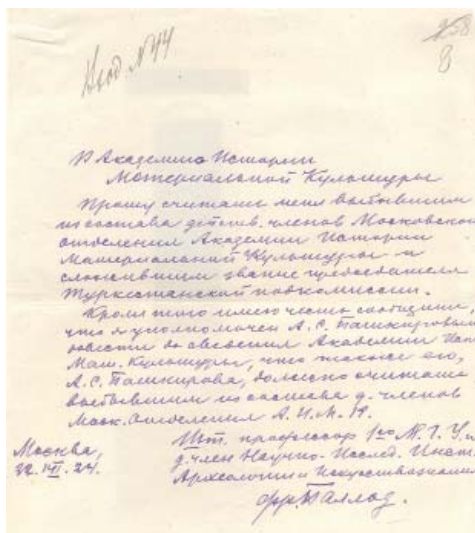 Вход. N 44
8
В Академию Истории
Материальной Культуры
Прошу считать меня выбывшим
из состава действ. членов Московского
отделения Академии Истории
Материальной Культуры и
сложившим звание председателя
Туркестанской подкомиссии.
Кроме того имею честь сообщить,
что я уполномочен А. С. Башкировым
довести до сведения Академии Ист.
Мат. Культуры, что также его,
А. С. Башкирова, должно считать
выбывшим из состава д. членов
Моск. Отделения А. И. М. К.
Москва,
22. 24.
Шт. профессор 1го М. Г. Ун.
д. член Научно-Исслед. Инст.
Археологии и Искусствознания
Фр. Баллод.